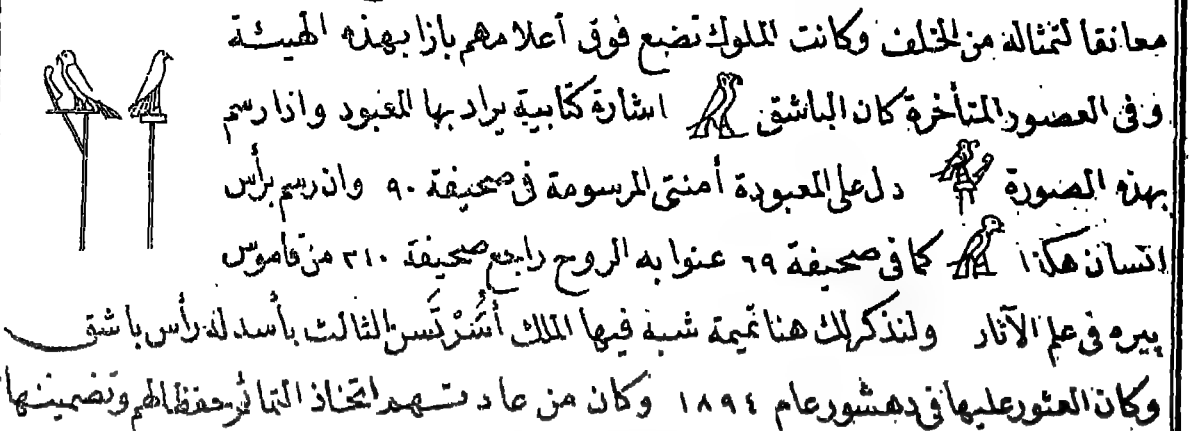 معانقا لتمثاله من الخلف وكانت الملوك تضع فوق أعلامهم بازا بهذه الهيئة
وفى العصور المتأخرة كان الباشق اشارة كتابية يراد بها المعبود واذا رسم
بهذه الصورة دل على المعبودة أمنتى المرسومة فى صحيفة ٩٠ وان رسم برأس
انسان هكذا كما فى صحيفة ٦٩ عنوا به الروح راجع صحيفة ٢١٠ من قاموس
بيره فى علم الآثار ولنذكر لك هنا تميمة شبه فيها الملك أُسُرْتَسن الثالث بأسد له رأس باشق
وكان العثور عليها فى دهشور عام ١٨٩٤ وكان من عادتهم اتخاذ التمائم حفظا لهم وتضمينها